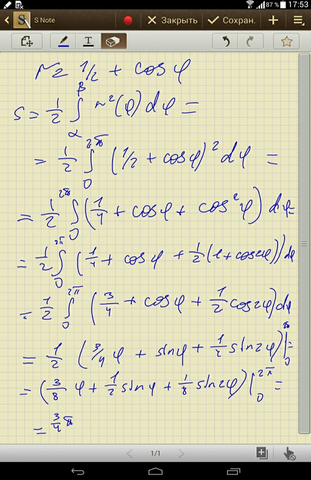 87 % 17:53
S Note Закрыть Сохран.
r = 1/2 + cosφ
S = 1/2 ∫_α^β r²(φ)dφ =
= 1/2 ∫_0^{2π} (1/2 + cosφ)² dφ =
= 1/2 ∫_0^{2π} (1/4 + cosφ + cos²φ) dφ =
= 1/2 ∫_0^{2π} (1/4 + cosφ + 1/2(1 + cos2φ)) dφ
= 1/2 ∫_0^{2π} (3/4 + cosφ + 1/2 cos2φ) dφ
= 1/2 (3/4 φ + sinφ + 1/2 sin2φ) |_0^{2π} =
= (3/8 φ + 1/2 sinφ + 1/8 sin2φ) |_0^{2π} =
= 3/4 π
1/1